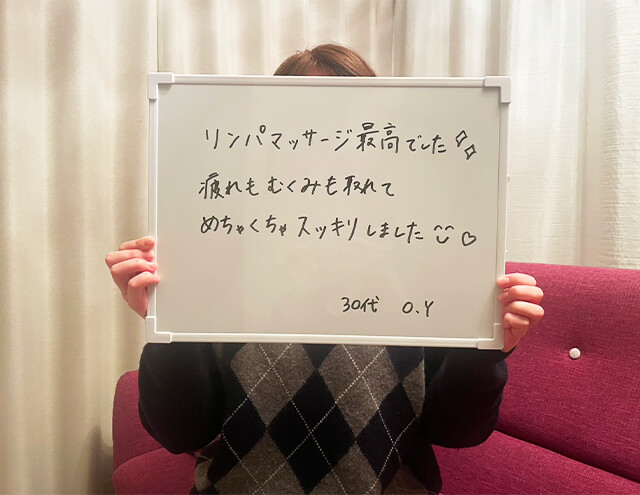 リンパマッサージ最高でした✨
疲れもむくみも取れて
めちゃくちゃスッキリしました😊♡
30代 O.Y